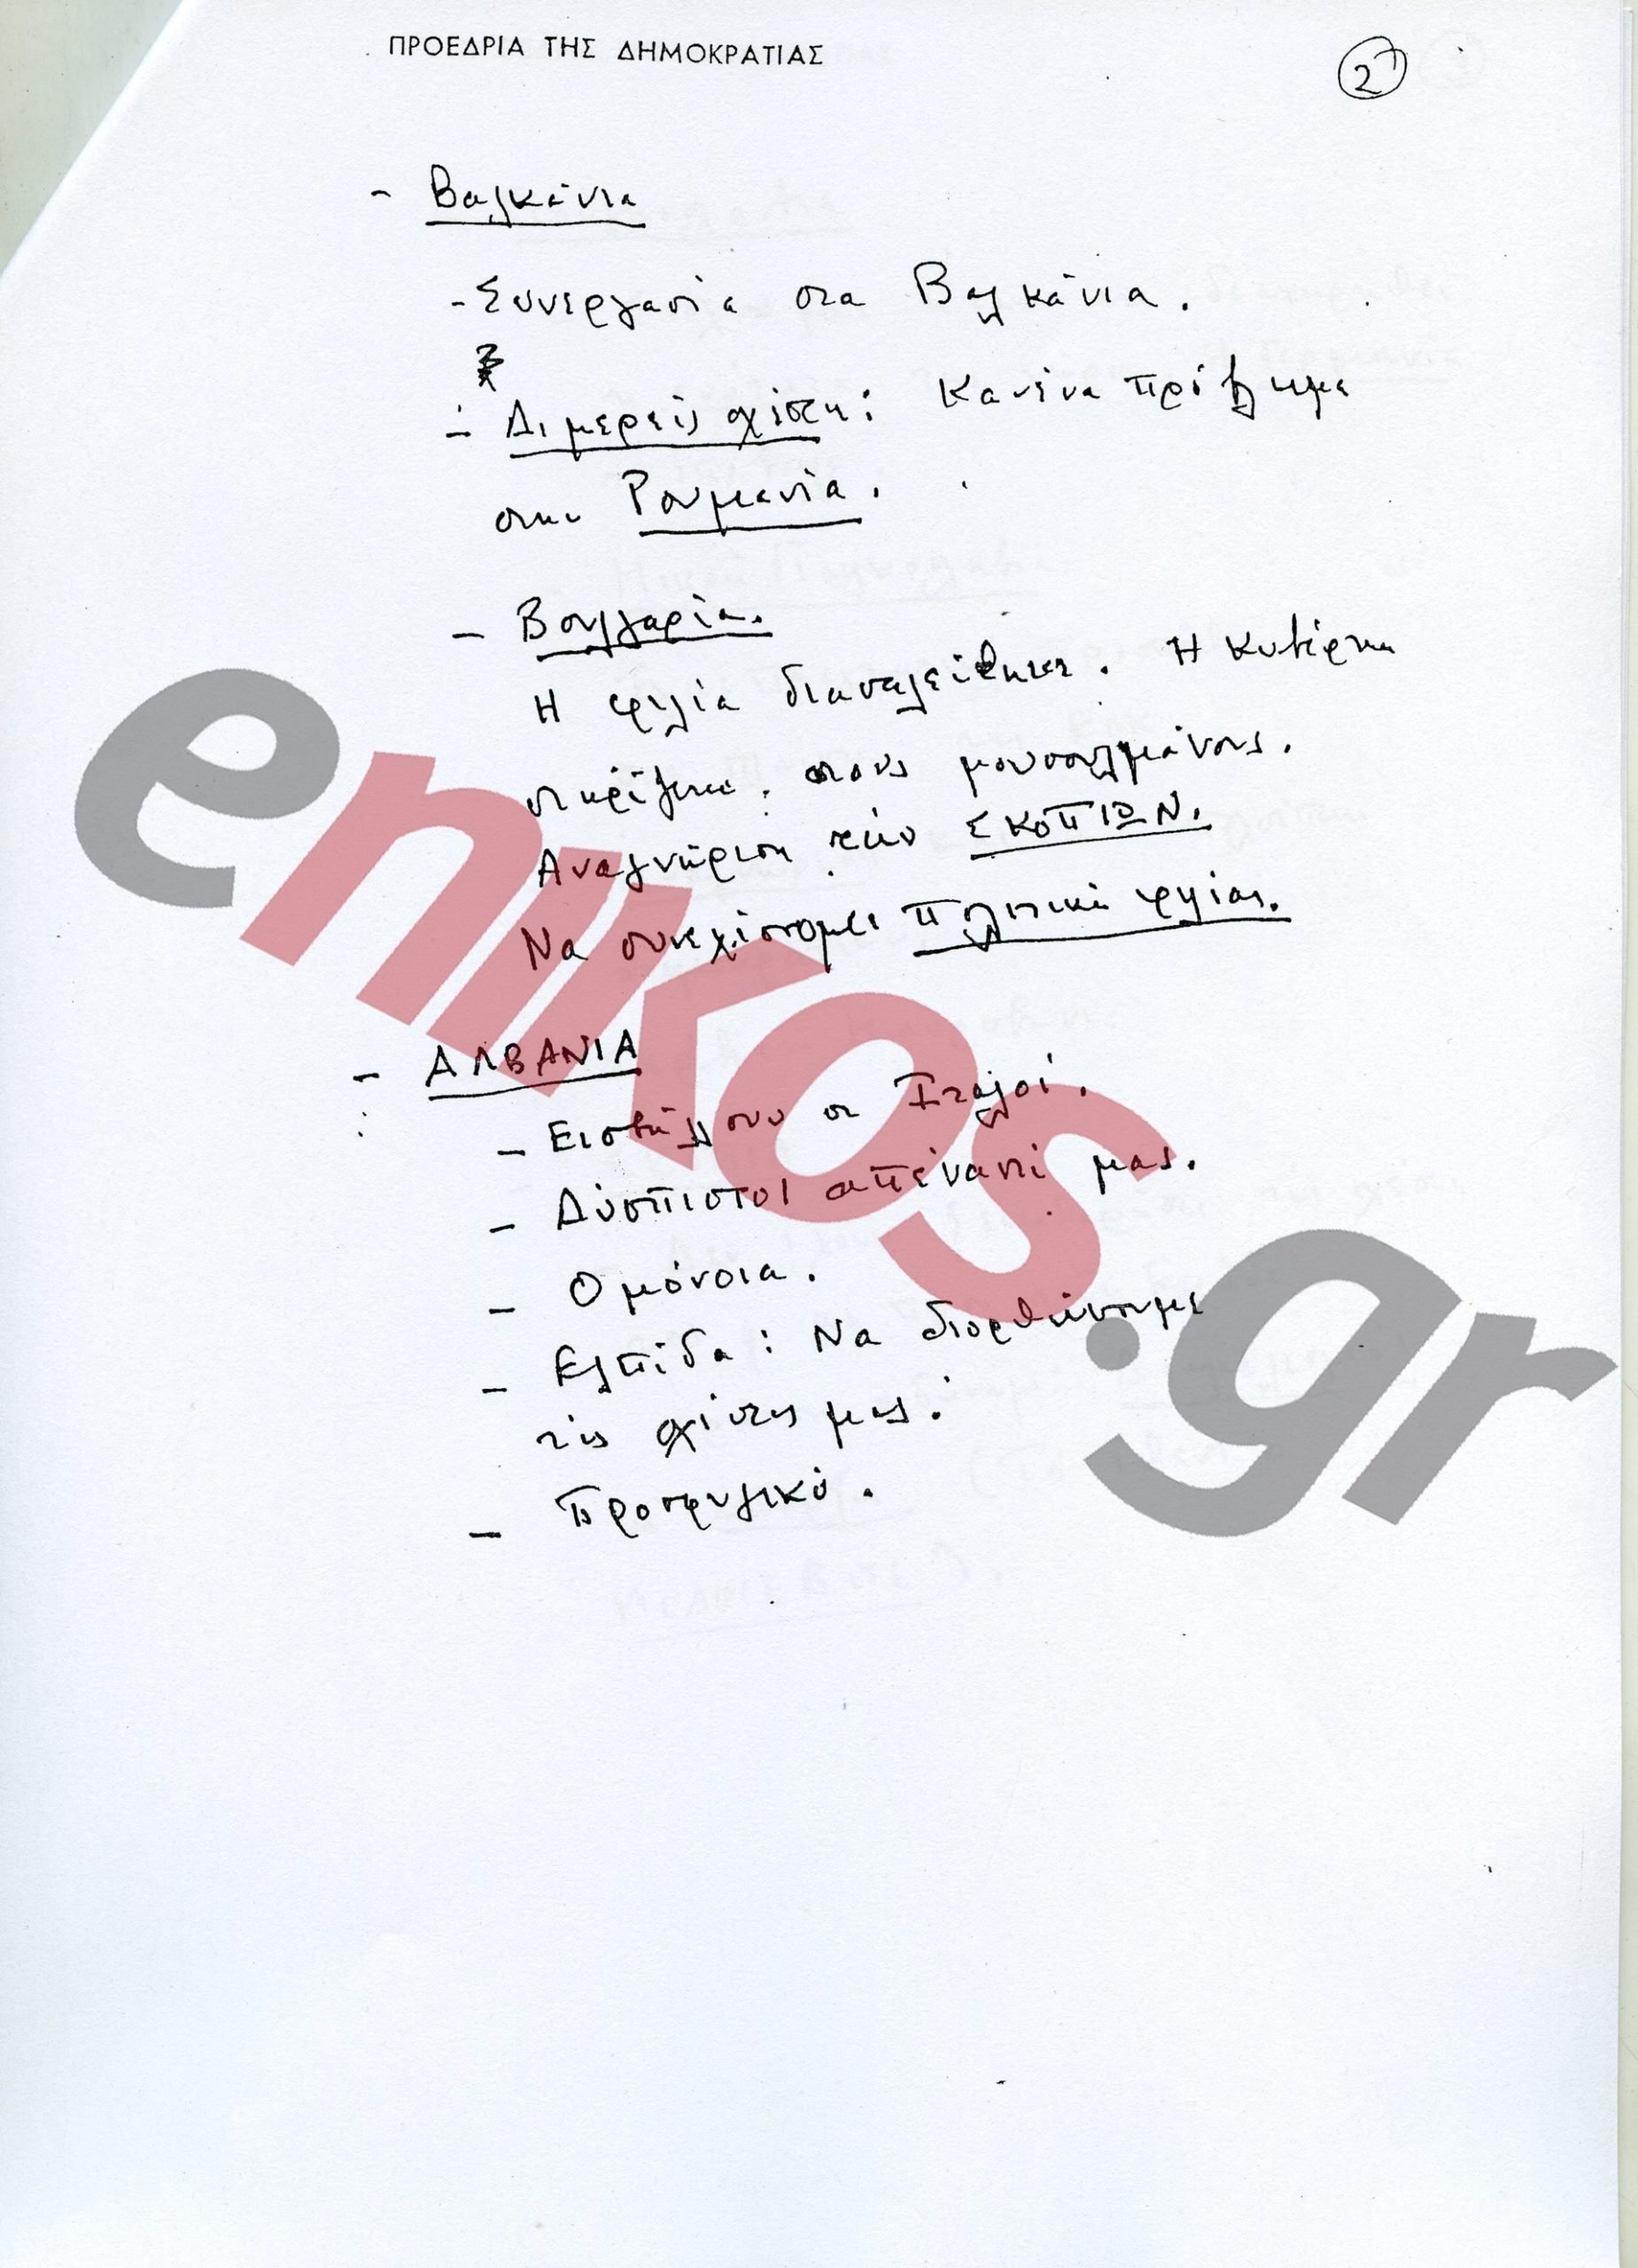 ΠΡΟΕΔΡΙΑ ΤΗΣ ΔΗΜΟΚΡΑΤΙΑΣ
2
- Βαλκάνια
- Συνεργασία στα Βαλκάνια.
- Διμερείς σχέσεις: Κανένα πρόβλημα
στην Ρουμανία.
- Βουλγαρία.
Η φιλία διασαλείθηκε. Η Κυβέρνηση
στηρίζεται στους μουσουλμάνους.
Αναγνώριση των ΣΚΟΠΙΩΝ.
Να συνεχίσουμε πολιτική φιλίας.
- ΑΛΒΑΝΙΑ
- Εισβάλλουν οι Ιταλοί.
- Δύσπιστοι απέναντί μας.
- Ομόνοια.
- Ελπίδα: Να διορθώσουμε
τις σχέσεις μας.
- Προσφυγικό.
enikos.gr